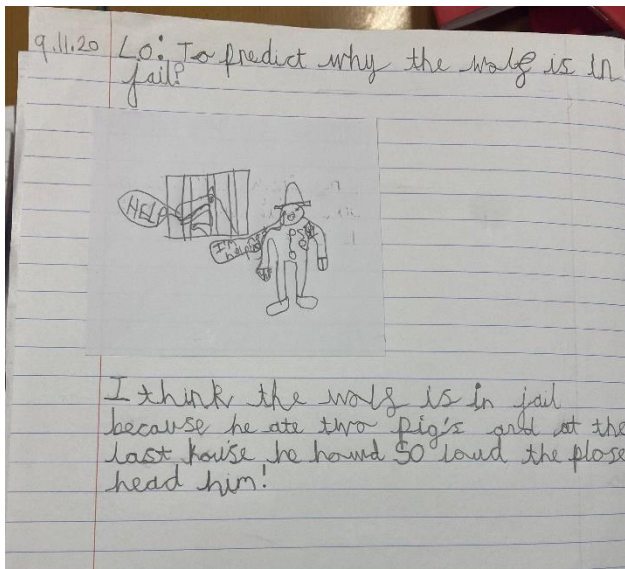 9.11.20 L.O: To predict why the wolf is in
jail?
HELP
I think the wolf is in jail
because he ate two pig's and at the
last house he howd so loud the plose
head him!